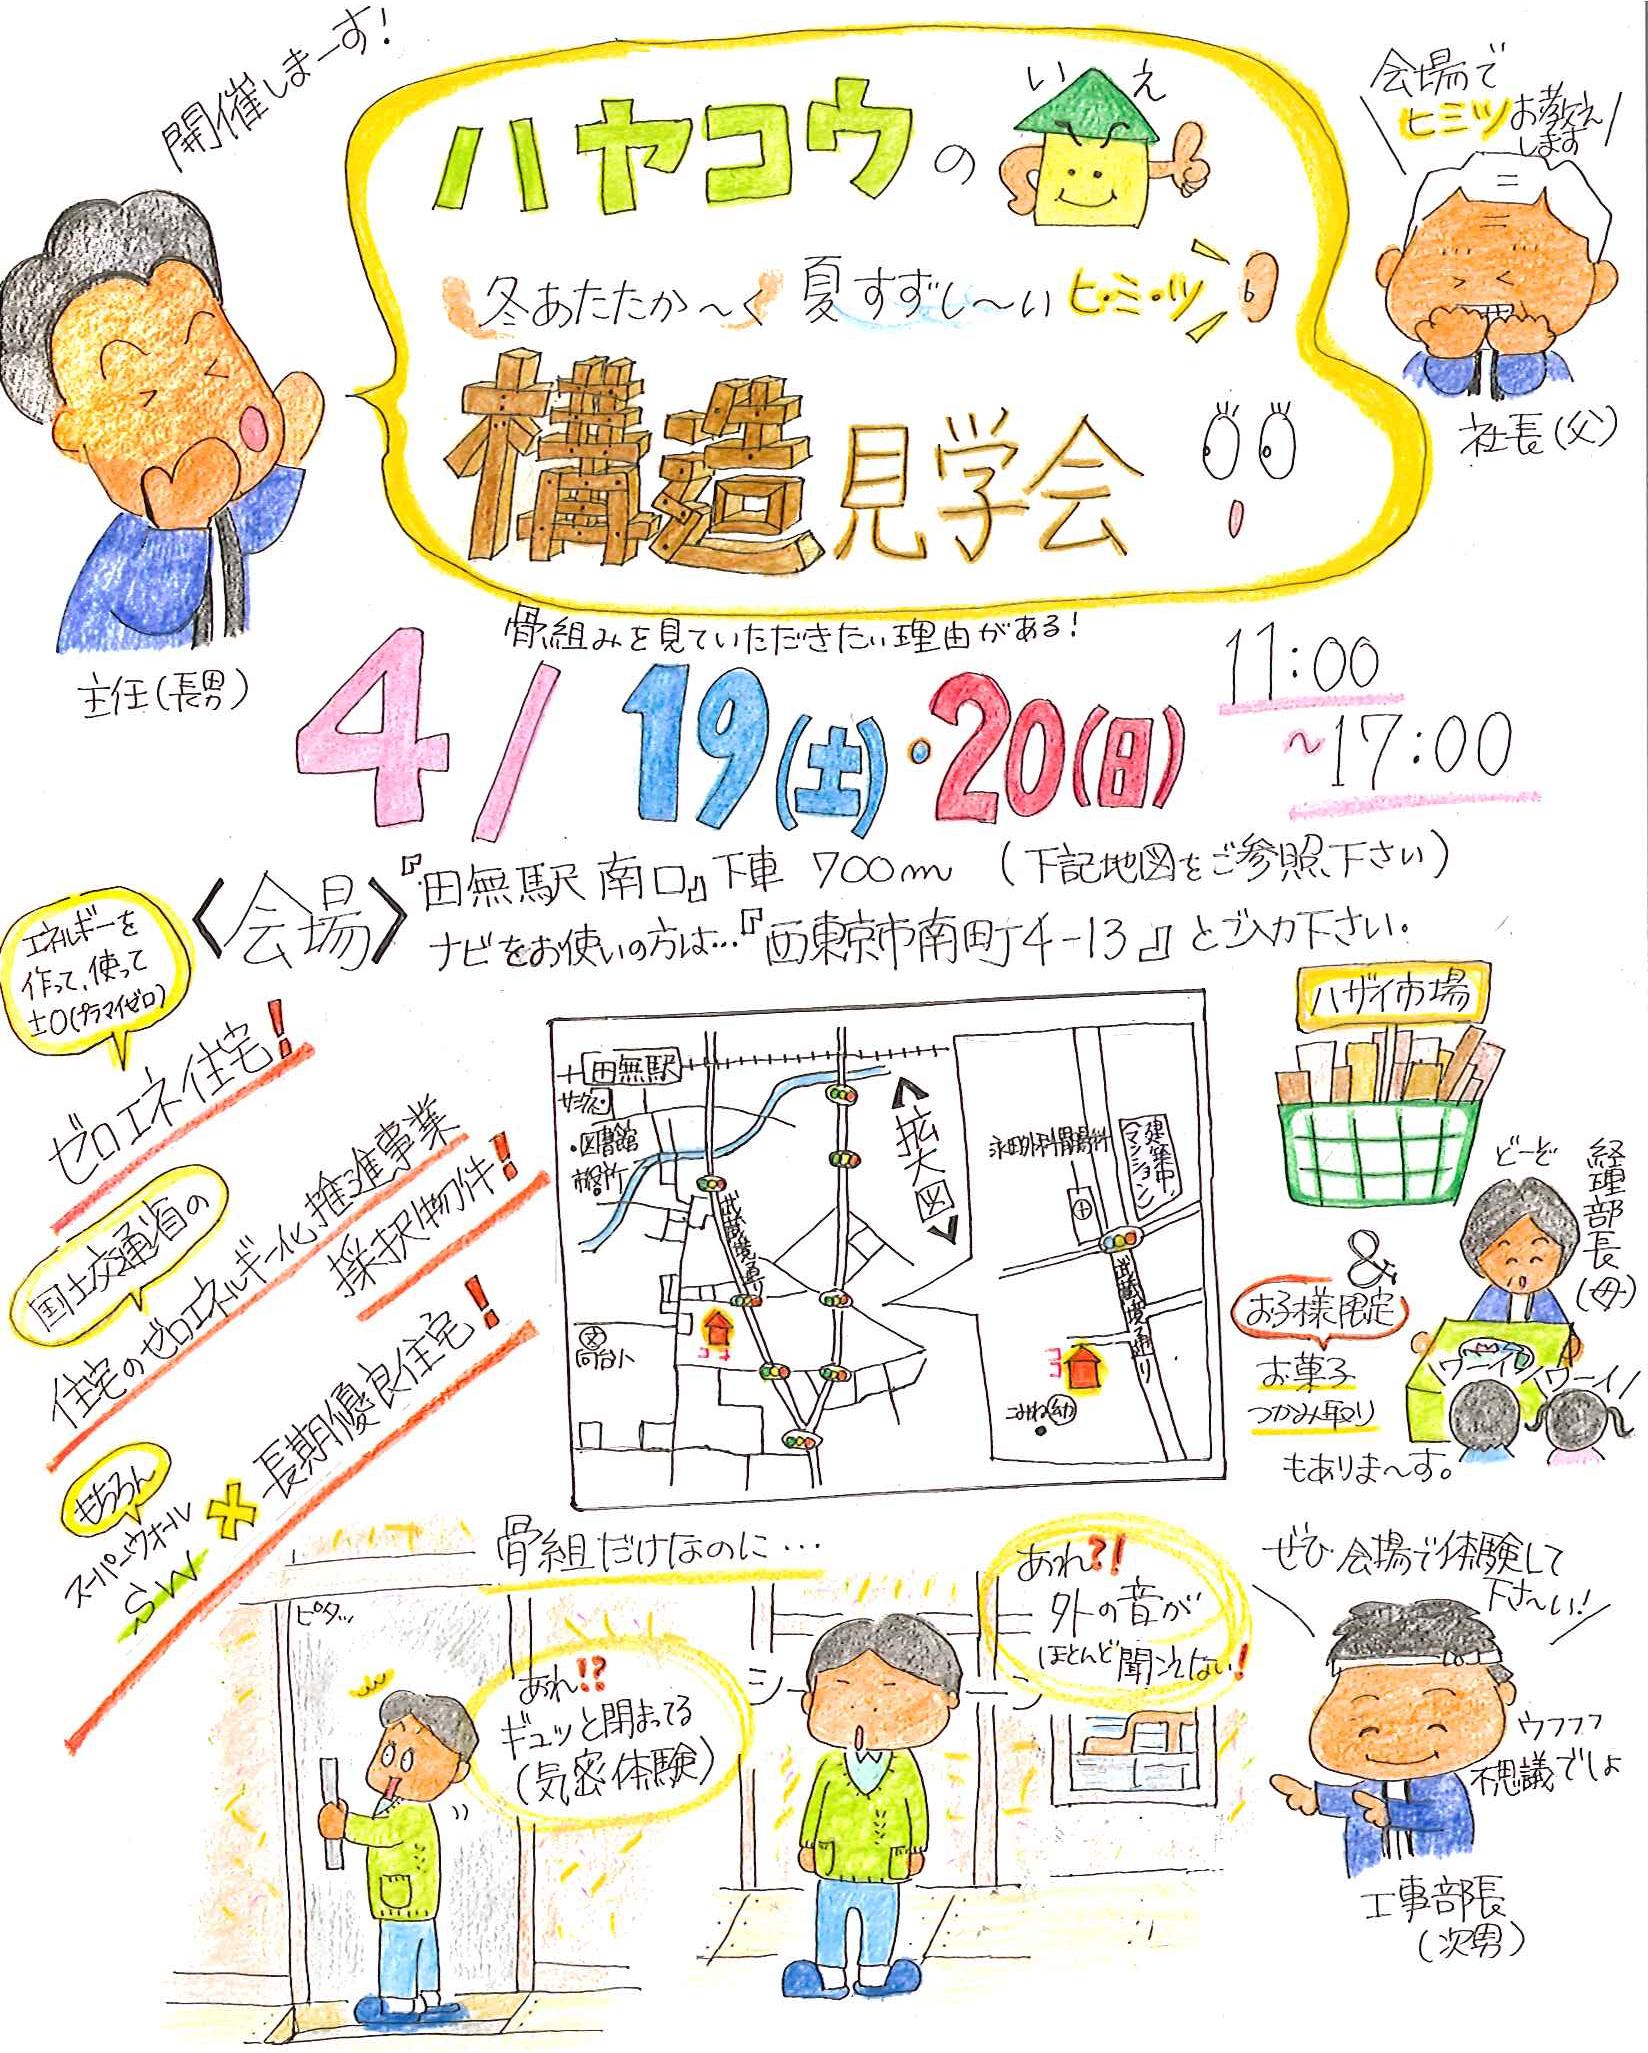 開催しまーす!
ハヤコウの
いえ
冬あたたか〜く 夏すずし〜い ヒ・ミ・ツ
構造見学会
会場で
ヒミツお教え
します
社長(父)
主任(長男)
骨組みを見ていただきたい理由がある!
4/19(土)・20(日)
11:00
〜17:00
〈会場〉
『田無駅 南口』下車 700m (下記地図をご参照下さい)
ナビをお使いの方は…『西東京市南町4-13』とご入力下さい。
エネルギーを
作って、使って
±0(プラマイゼロ)
ゼロエネ住宅!
国土交通省の
住宅のゼロエネルギー化推進事業
採択物件!
もちろん
スーパーウォール
SW×長期優良住宅!
田無駅
・図書館
市役所
武蔵境通り
ココ
文
向台小
〈拡大図〉
建築中
(マンション)
武蔵境通り
ココ
こみね幼
ハザイ市場
&
どーぞ
経理部長(母)
お子様限定
お菓子
つかみ取り
もありま〜す。
ワーイ
ワーイ
骨組だけなのに…
ピタッ
あれ!?
ギュッと閉まってる
(気密体験)
シーーーン
あれ?!
外の音が
ほとんど聞こえない!
ぜひ会場で体験して
下さ〜い!
ウフフフ
不思議でしょ
工事部長
(次男)